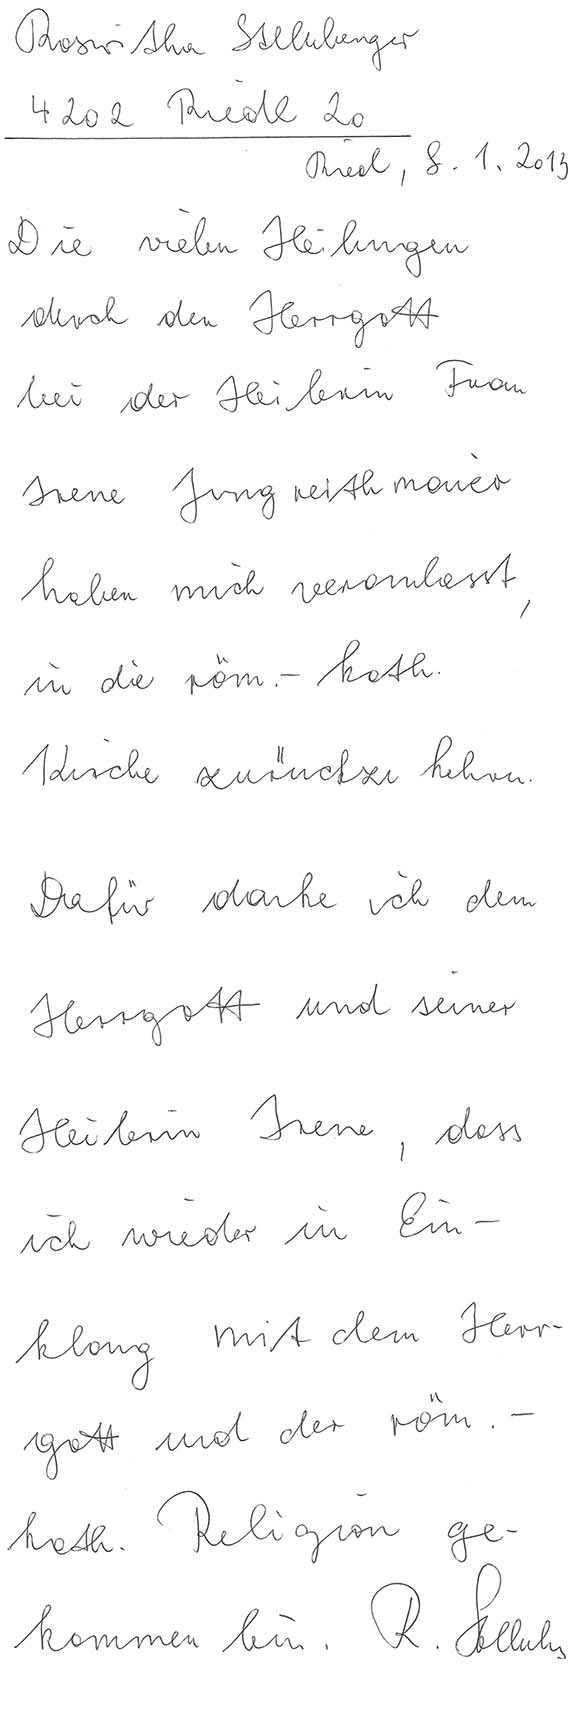 Roswitha
4202 Riedl 20
Riedl, 8.1.2013
Die vielen Heilungen
durch den Herrgott
bei der Heilerin Frau
Irene Jungreithmaier
haben mich veranlasst,
in die röm.- kath.
Kirche zurückzukehren.
Dafür danke ich dem
Herrgott und seiner
Heilerin Irene, dass
ich wieder in Ein-
klang mit dem Herr-
gott und der röm.-
kath. Religion ge-
kommen bin. R.